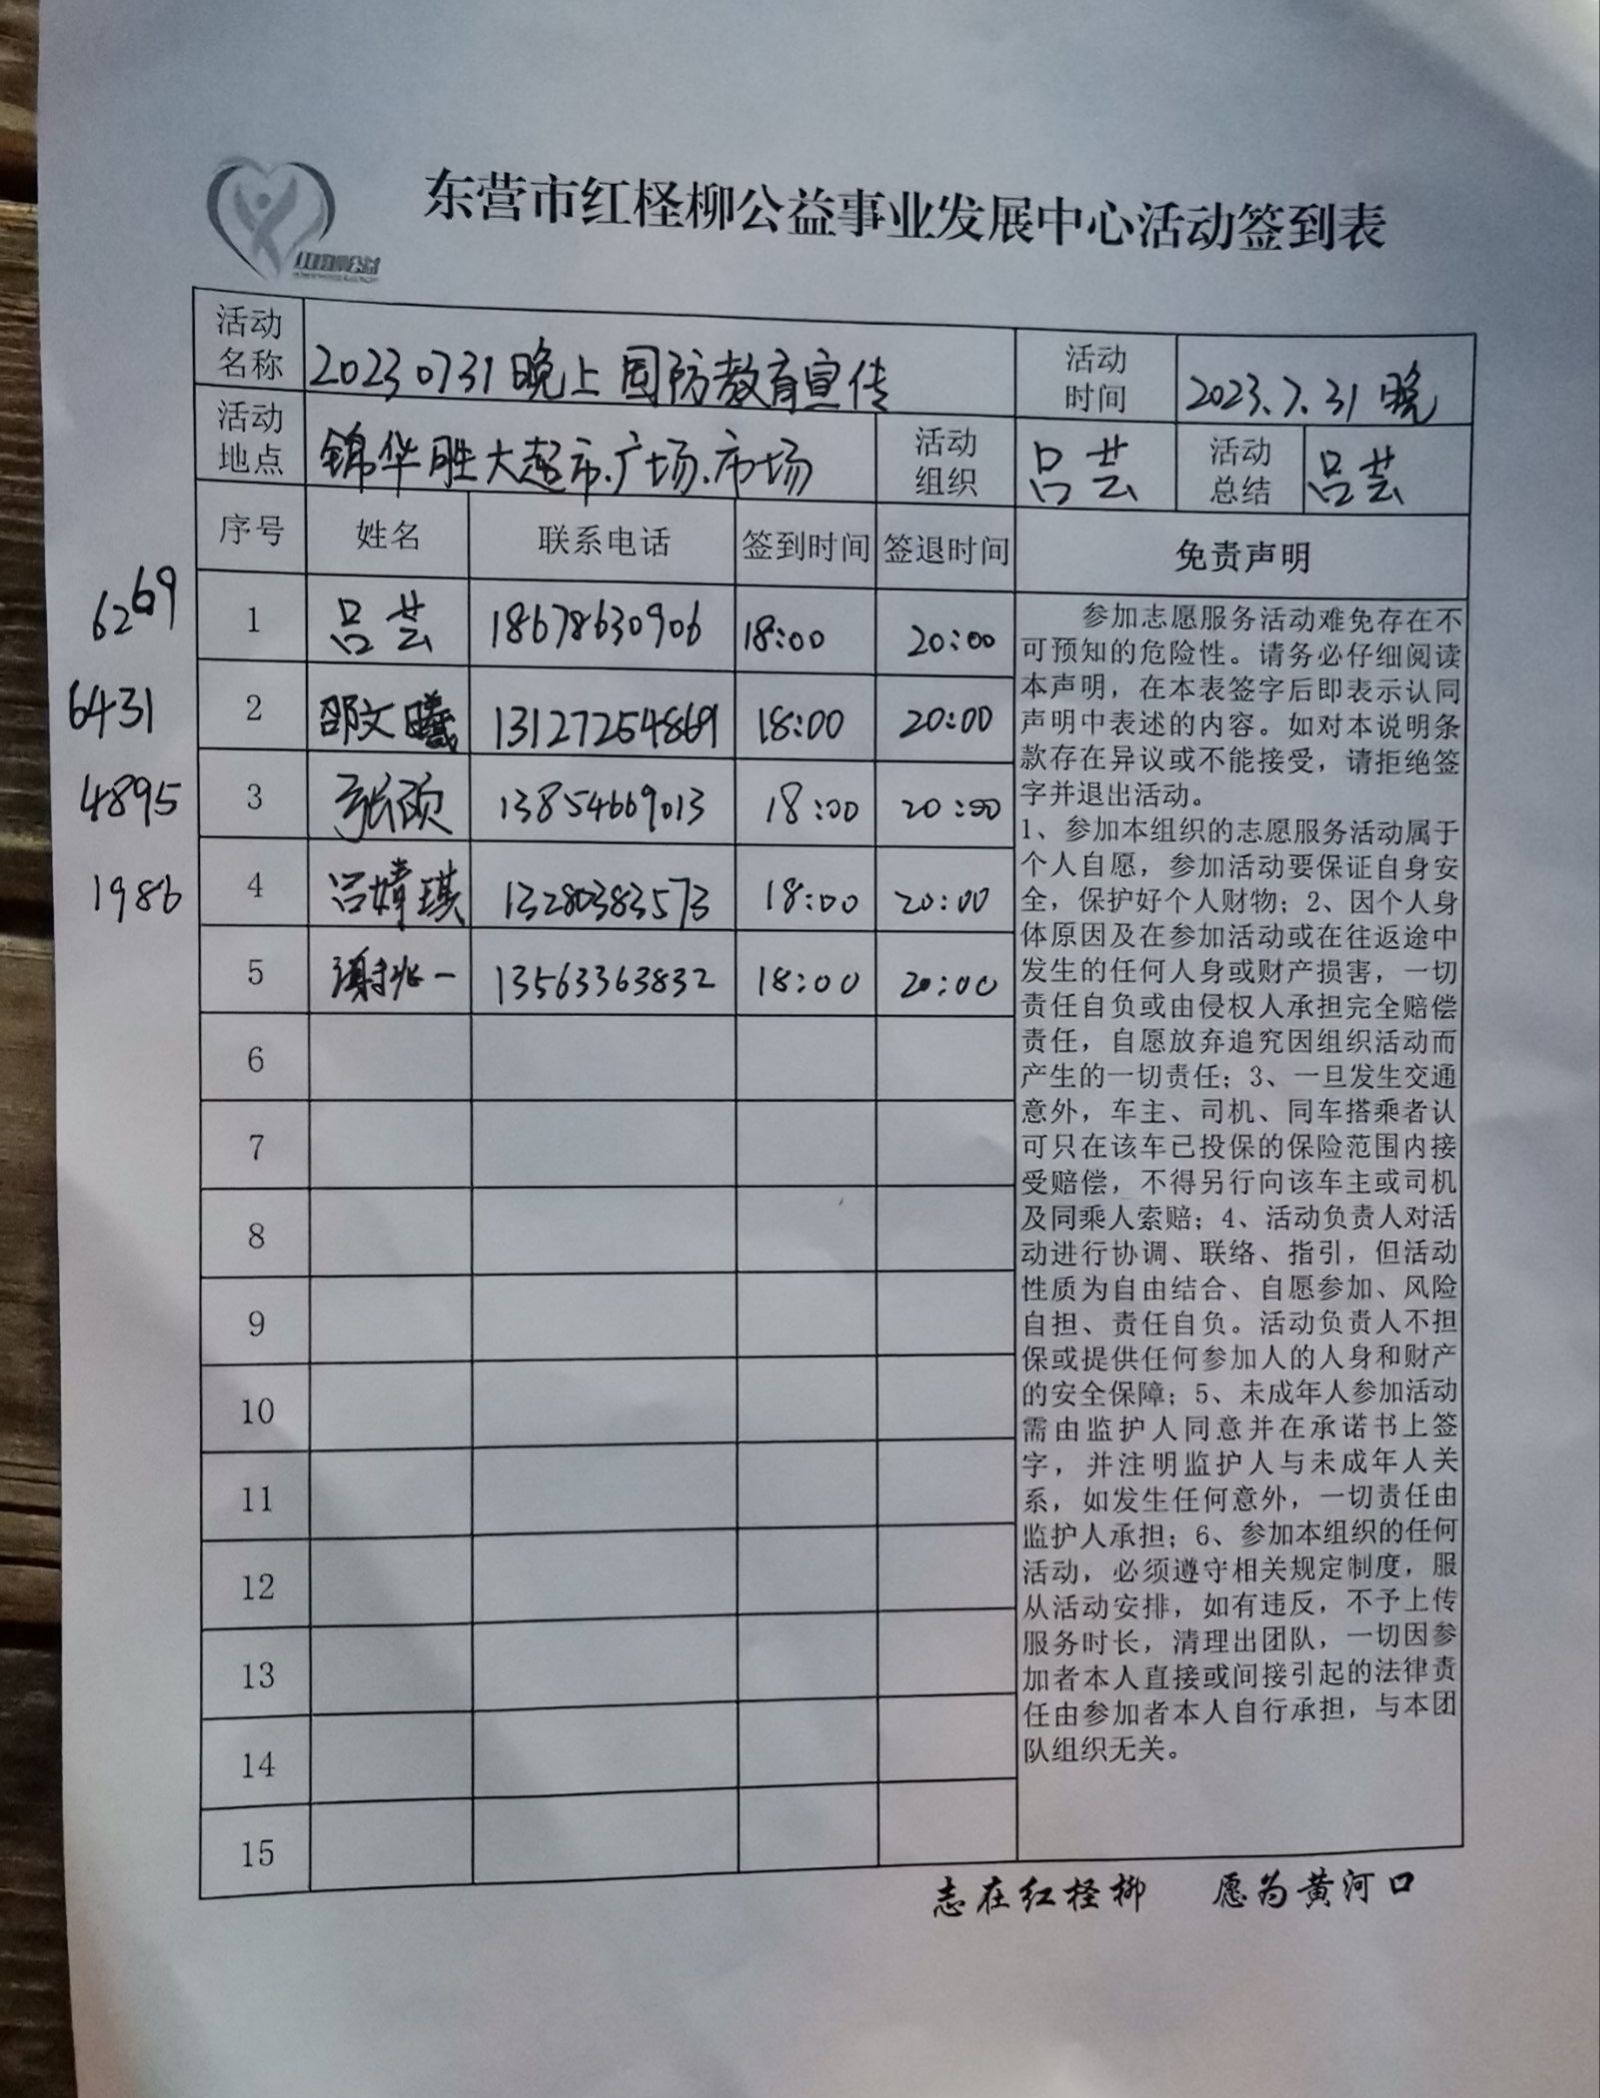 东营市红柽柳公益事业发展中心活动签到表
活动名称 20230731晚上国防教育宣传 活动时间 2023.7.31晚
活动地点 锦华胜大超市、广场、市场 活动组织 吕芸 活动总结 吕芸
序号 姓名 联系电话 签到时间 签退时间 免责声明
6269 1 吕芸 18678630906 18:00 20:00
6431 2 邵文曦 13127254869 18:00 20:00
4895 3 张硕 13854669013 18:00 20:00
1986 4 吕婧琪 13280383573 18:00 20:00
5 一 13563363832 18:00 20:00
6
7
8
9
10
11
12
13
14
15
参加志愿服务活动难免存在不
可预知的危险性。请务必仔细阅读
本声明，在本表签字后即表示认同
声明中表述的内容。如对本说明条
款存在异议或不能接受，请拒绝签
字并退出活动。
1、参加本组织的志愿服务活动属于
个人自愿，参加活动要保证自身安
全，保护好个人财物；2、因个人身
体原因及在参加活动或在往返途中
发生的任何人身或财产损害，一切
责任自负或由侵权人承担完全赔偿
责任，自愿放弃追究因组织活动而
产生的一切责任；3、一旦发生交通
意外，车主、司机、同车搭乘者认
可只在该车已投保的保险范围内接
受赔偿，不得另行向该车主或司机
及同乘人索赔；4、活动负责人对活
动进行协调、联络、指引，但活动
性质为自由结合、自愿参加、风险
自担、责任自负。活动负责人不担
保或提供任何参加人的人身和财产
的安全保障；5、未成年人参加活动
需由监护人同意并在承诺书上签
字，并注明监护人与未成年人关
系，如发生任何意外，一切责任由
监护人承担；6、参加本组织的任何
活动，必须遵守相关规定制度，服
从活动安排，如有违反，不予上传
服务时长，清理出团队，一切因参
加者本人直接或间接引起的法律责
任由参加者本人自行承担，与本团
队组织无关。
志在红柽柳 愿为黄河口